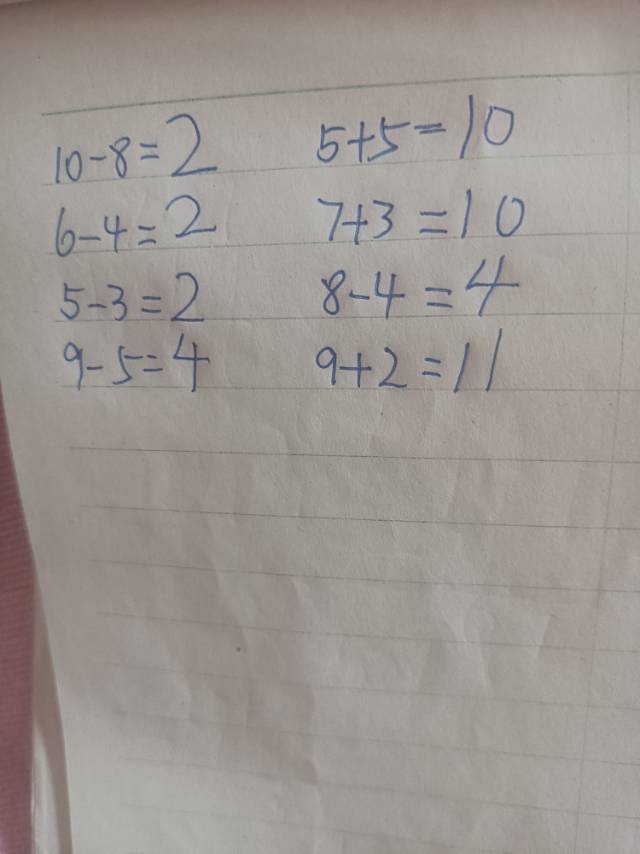 10-8=2 5+5=10
6-4=2 7+3=10
5-3=2 8-4=4
9-5=4 9+2=11